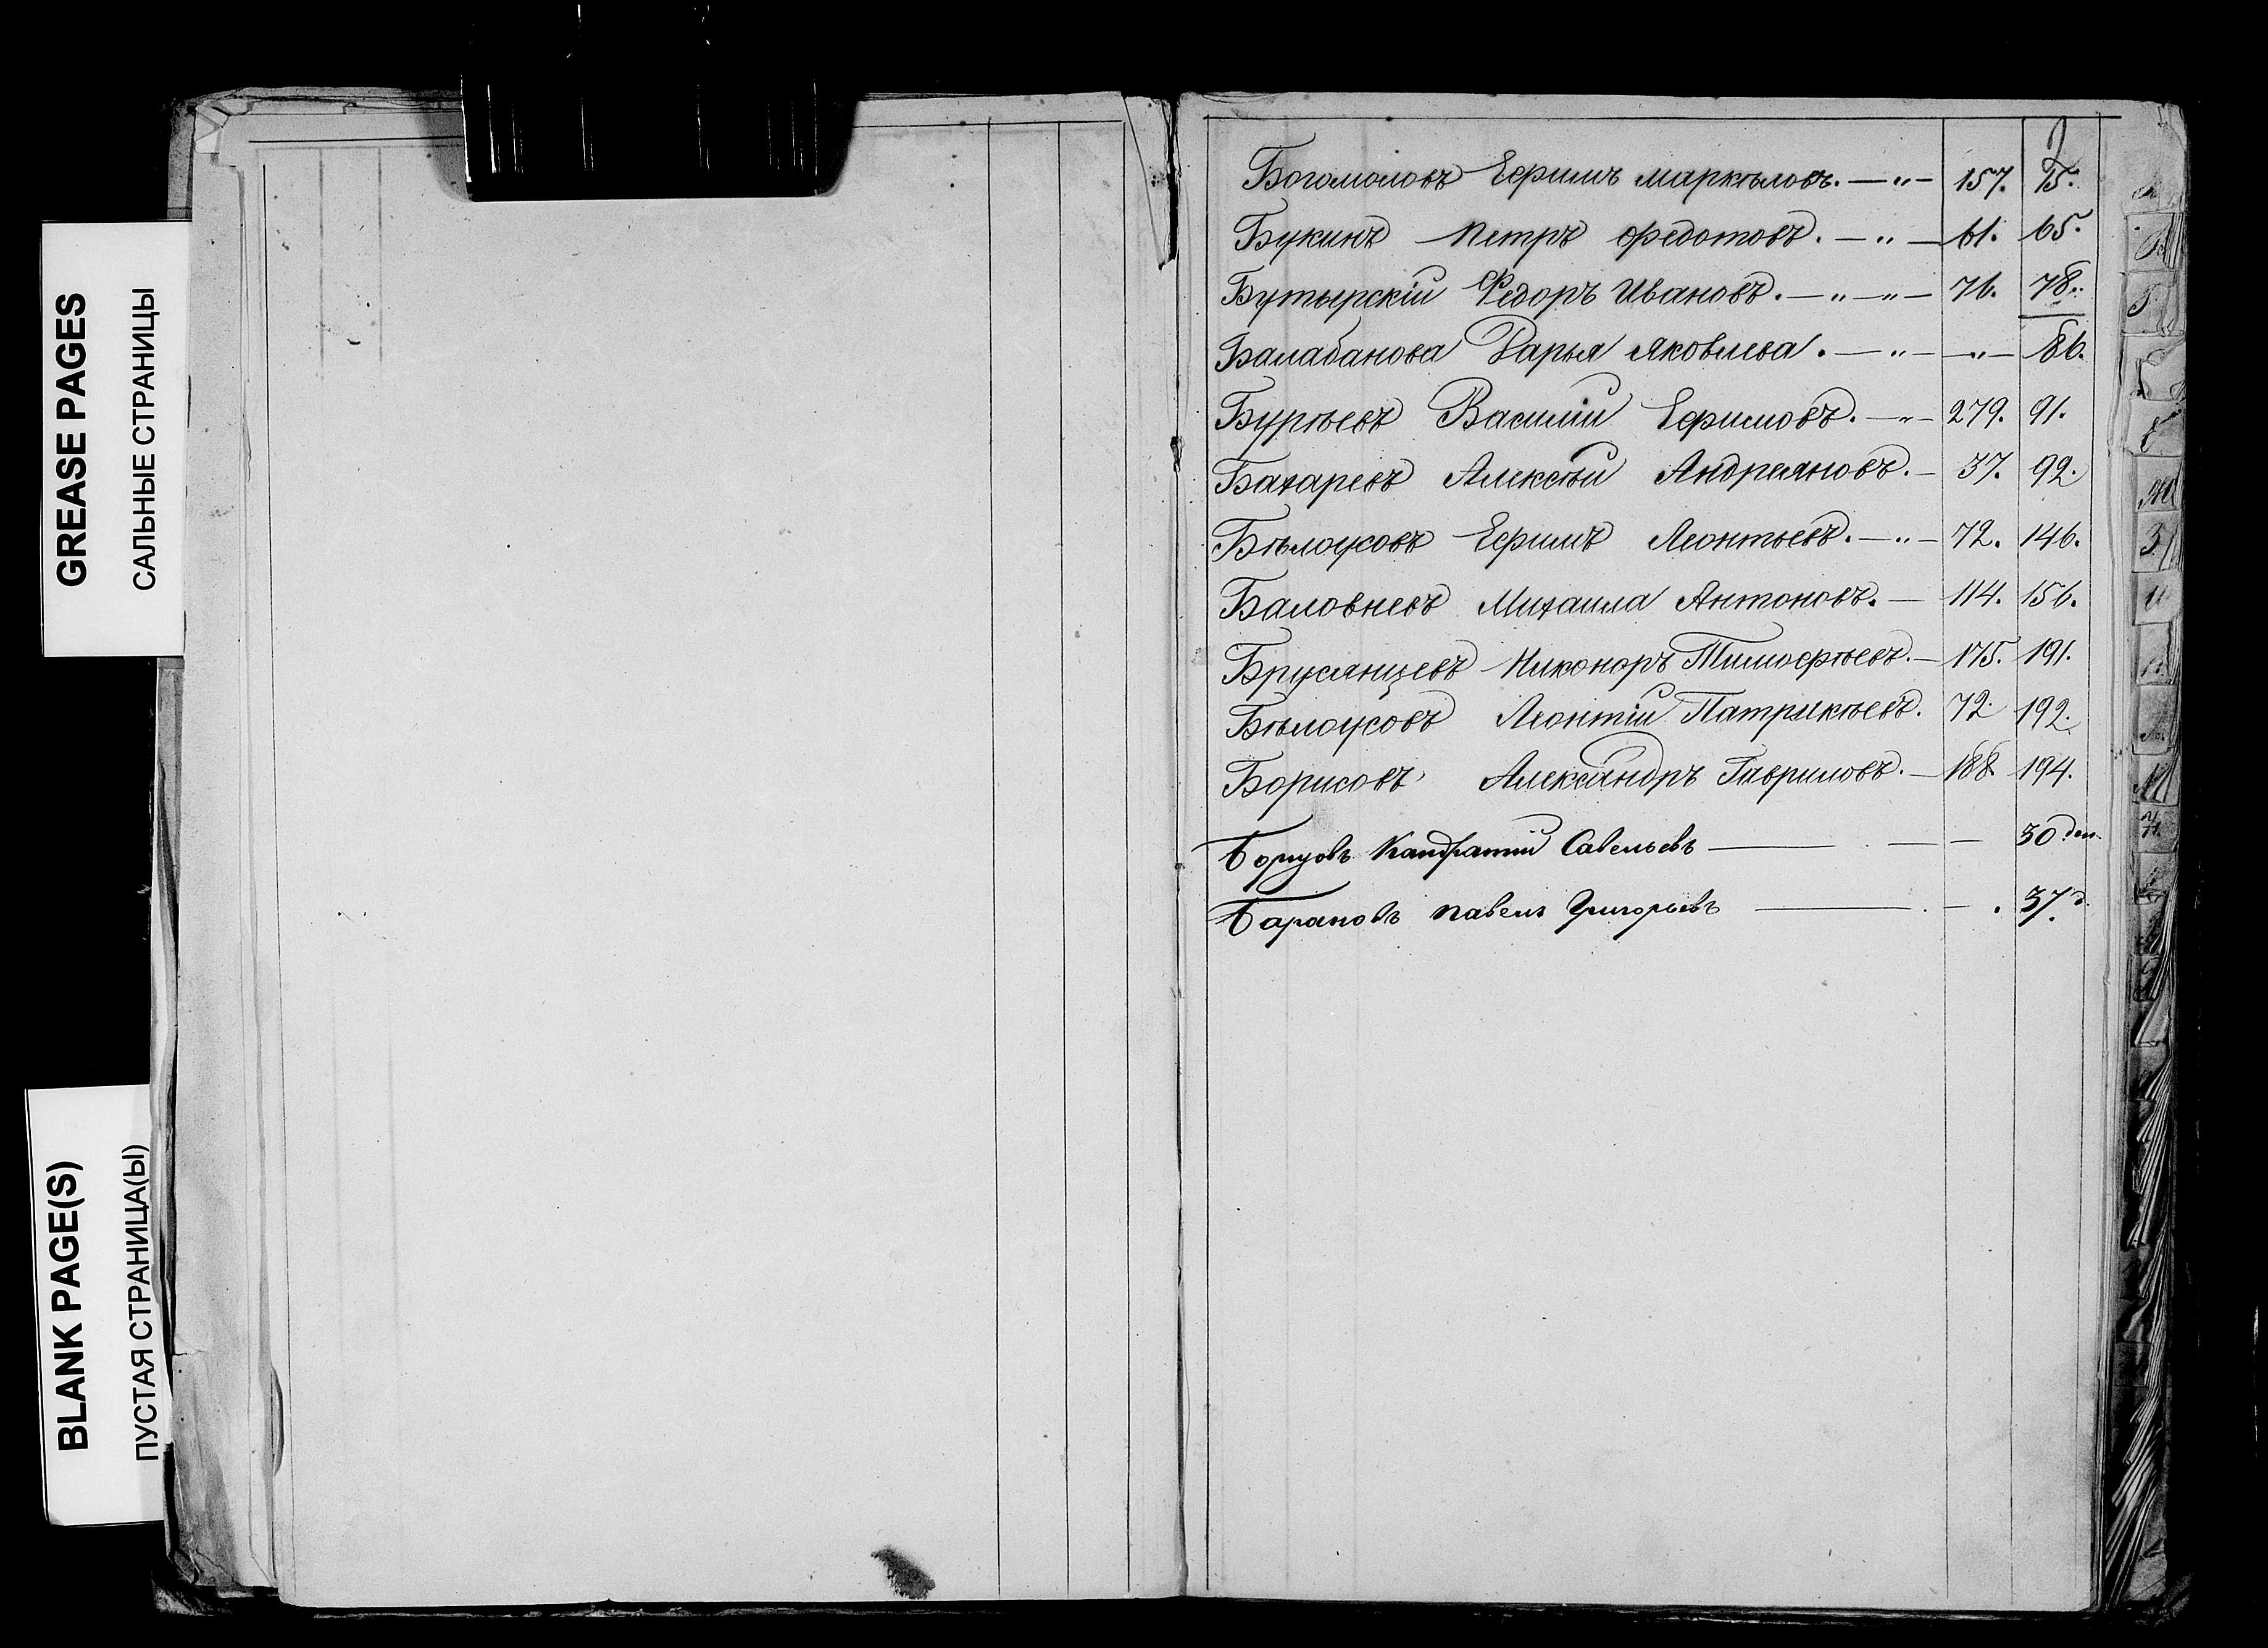 GREASE PAGES
САЛЬНЫЕ СТРАНИЦЫ
BLANK PAGE(S)
ПУСТАЯ СТРАНИЦА(Ы)
Богомоловъ Ефимъ Маркѣловъ. — „ — 157. 75.
Букинъ Петръ Федотовъ. — „ — 61. 65.
Бутырскій Федоръ Ивановъ. — „ — „ — 76. 78.
Балабанова Дарья Яковлева. — „ — „ — 86.
Бурѣевъ Василій Ефимовъ. — „ — 279. 91.
Бахаревъ Алексѣй Андреяновъ. — 37. 92.
Бѣлоусовъ Ефимъ Леонтьевъ. — „ — 72. 146.
Баловневъ Михаила Антоновъ. — 114. 156.
Брусянцевъ Никоноръ Тимофѣевъ. — 175. 191.
Бѣлоусовъ Леонтій Патрикѣевъ. 72. 192.
Борисовъ Александръ Гавриловъ. — 188. 194.
Борзовъ Кандратій Савельевъ — — — 30
Барановъ Павелъ Григорьевъ — — . 37 д.
З
И
М